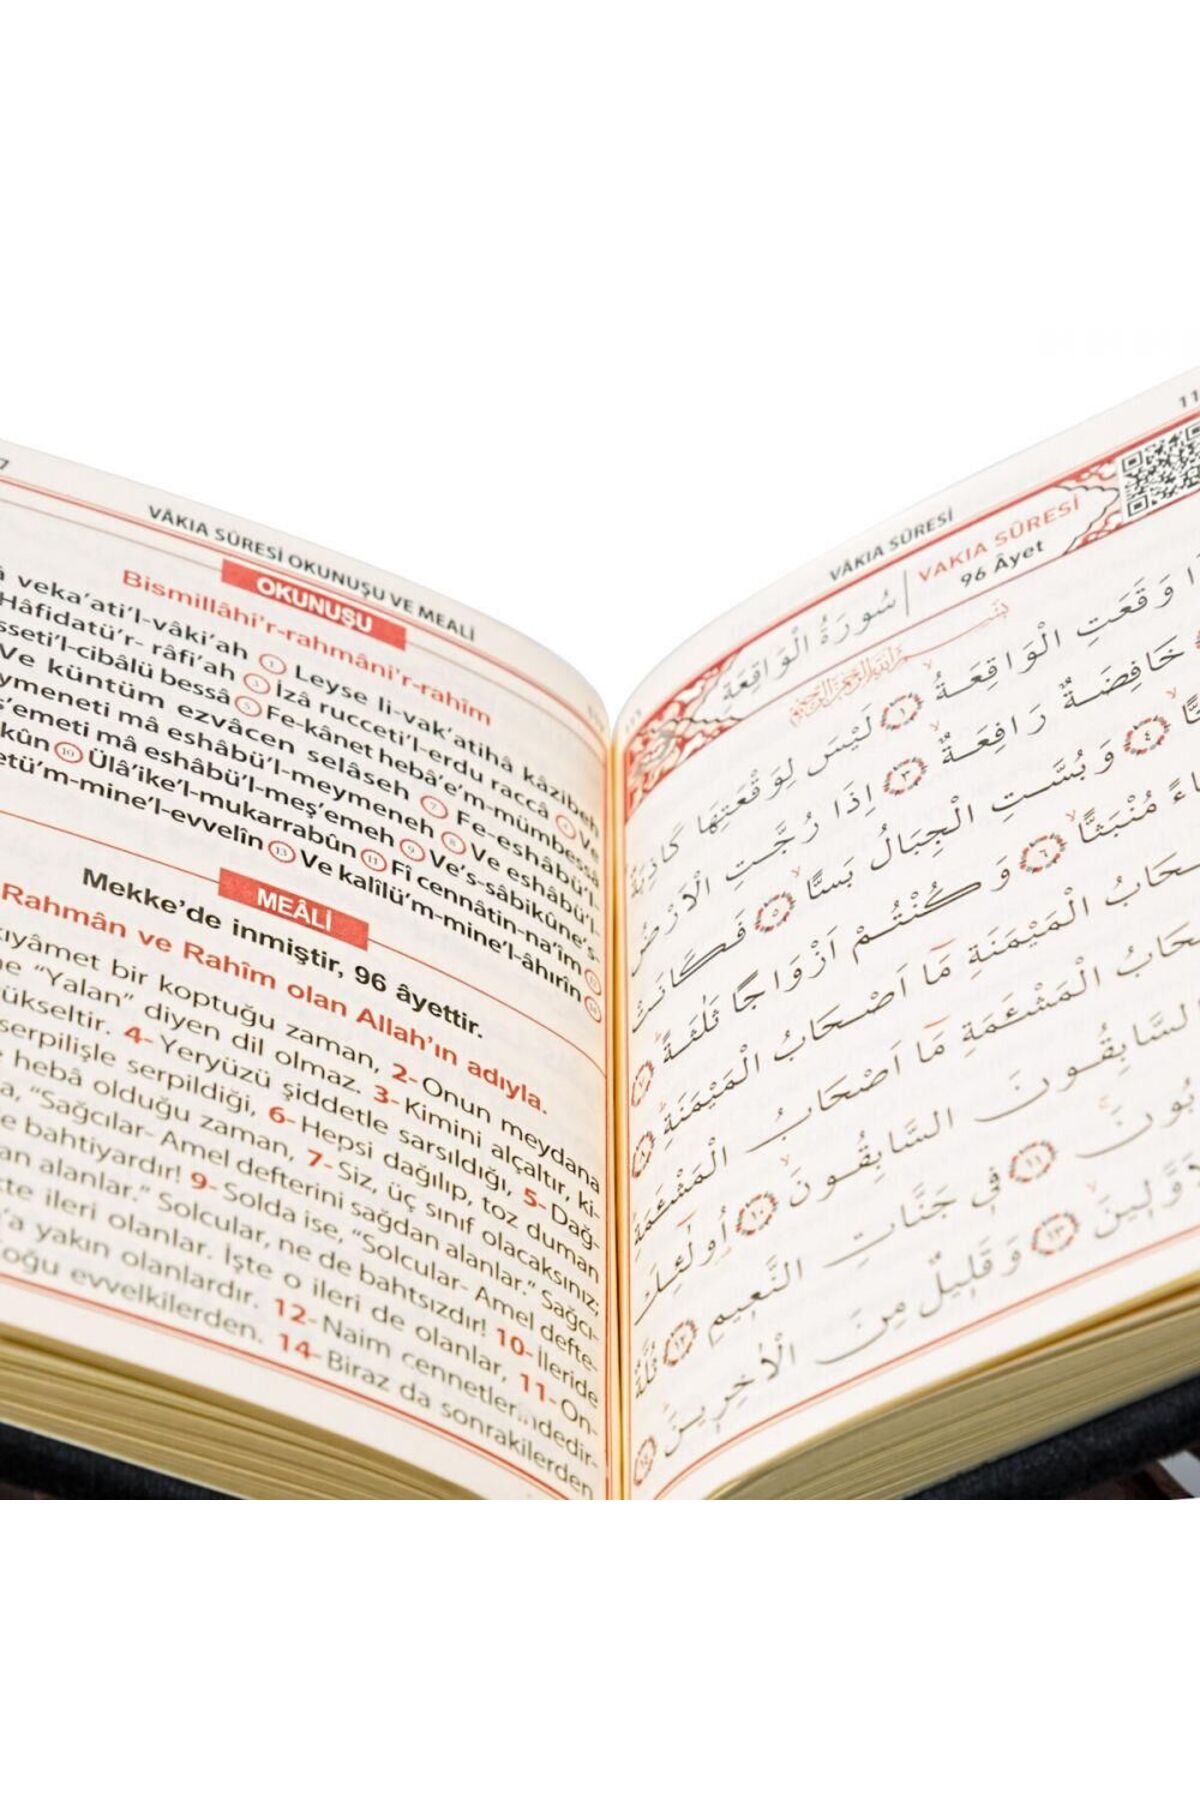 VÂKIA SÛRESİ OKUNUŞU VE MEALİ
OKUNUŞU
Bismillâhi'r-rahmâni'r-rahîm
veka'ati'l-vâki'ah ① Leyse li-vak'atihâ kâzibeh
Hâfidatü'r- râfi'ah ③ İzâ rucceti'l-erdu raccâ ④ Ve
sseti'l-cibâlü bessâ ⑤ Fe-kânet hebâ'e'm-mümbessâ
Ve küntüm ezvâcen selâseh ⑦ Fe-eshâbü'l-
ymeneti mâ eshâbü'l-meymeneh ⑧ Ve eshâbü'l-
ş'emeti mâ eshâbü'l-meş'emeh ⑨ Ve's-sâbikûne's-
kûn ⑩ Ülâ'ike'l-mukarrabûn ⑪ Fî cennâtin-na'îm ⑫
etü'm-mine'l-evvelîn ⑬ Ve kalîlü'm-mine'l-âhırîn ⑭
MEÂLİ
Mekke'de inmiştir, 96 âyettir.
Rahmân ve Rahîm olan Allah'ın adıyla.
kıyâmet bir koptuğu zaman, 2- Onun meydana
ne "Yalan" diyen dil olmaz. 3- Kimini alçaltır, ki-
ükseltir. 4- Yeryüzü şiddetle sarsıldığı, 5- Dağ-
serpilişle serpildiği, 6- Hepsi dağılıp, toz duman
hebâ olduğu zaman, 7- Siz, üç sınıf olacaksınız;
a, "Sağcılar- Amel defterini sağdan alanlar." Sağcı-
e bahtiyardır! 9- Solda ise, "Solcular- Amel defte-
an alanlar." Solcular, ne de bahtsızdır! 10- İleride
te ileri olanlar. İşte o ileri de olanlar, 11- On-
'a yakın olanlardır. 12- Naim cennetlerindedir-
Çoğu evvelkilerden. 14- Biraz da sonrakilerden
VÂKIA SÛRESİ
11
سُورَةُ الْوَاقِعَةِ
VAKIA SÛRESİ
96 Âyet
وَقَعَتِ الْوَاقِعَةُ ١ لَيْسَ لِوَقْعَتِهَا كَاذِبَةٌ
خَافِضَةٌ رَافِعَةٌ ٣ اِذَا رُجَّتِ الْاَرْضُ
٤ وَبُسَّتِ الْجِبَالُ بَسًّا ٥ فَكَانَتْ
مُنْبَثًّا ٦ وَكُنْتُمْ اَزْوَاجًا ثَلٰثَةً ٧
الْمَيْمَنَةِ مَا اَصْحَابُ الْمَيْمَنَةِ ٨
الْمَشْـَٔمَةِ مَا اَصْحَابُ الْمَشْـَٔمَةِ
السَّابِقُونَ السَّابِقُونَ ١٠ اُولٰٓئِكَ
١١ فِي جَنَّاتِ النَّعِيمِ ١٢ ثُلَّةٌ
١٣ وَقَلِيلٌ مِنَ الْاٰخِرِينَ ١٤